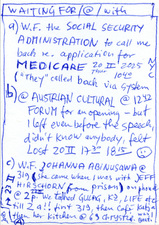 WAITING FOR/@/with
a) W.F. the SOCIAL SECURITY
ADMINISTRATION to call me
back w. application for
MEDICARE 20 II 2025
("They" called back via system
b) @ AUSTRIAN CULTURAL @ 1242
FORUM for an opening – but
left even before the speech,
didn't know anybody, felt
lost 20 II 1825
c) W.F. JOHANNA
319 (She came when I was with JEFF
HIRSCHORN (from prison) on phone
@ 2p. We talked GUGG, K3, LIFE etc
till 2a!! first 319, then Café
then her kitchen @ 63 Chrystie.